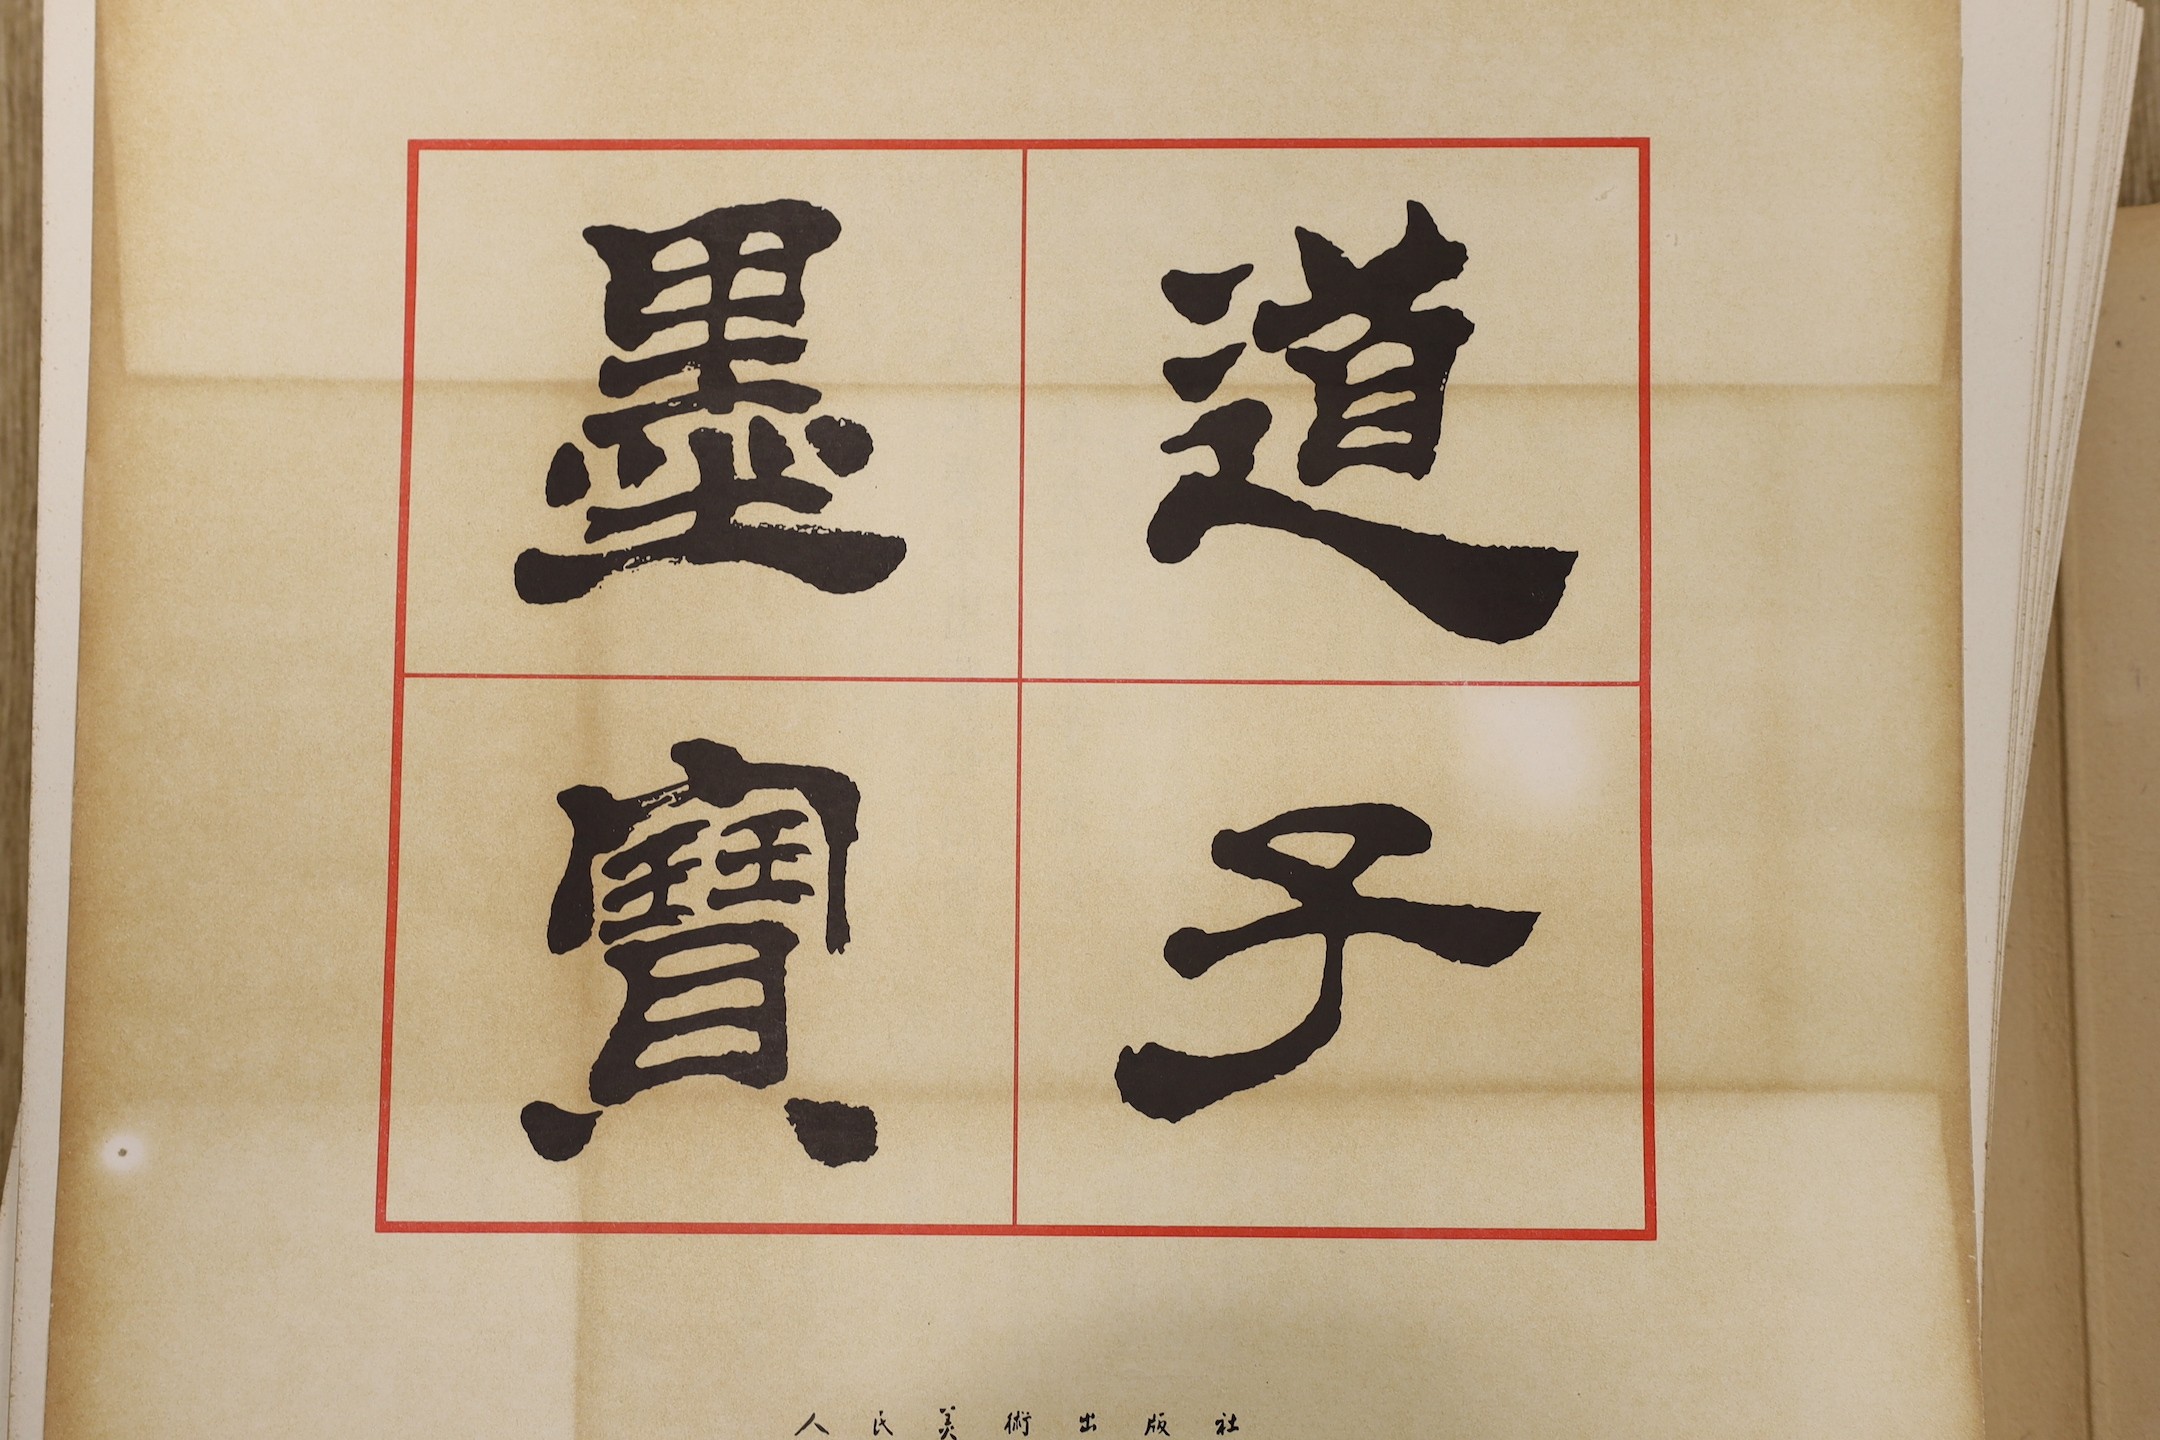 道子
墨寶
人民美術出版社